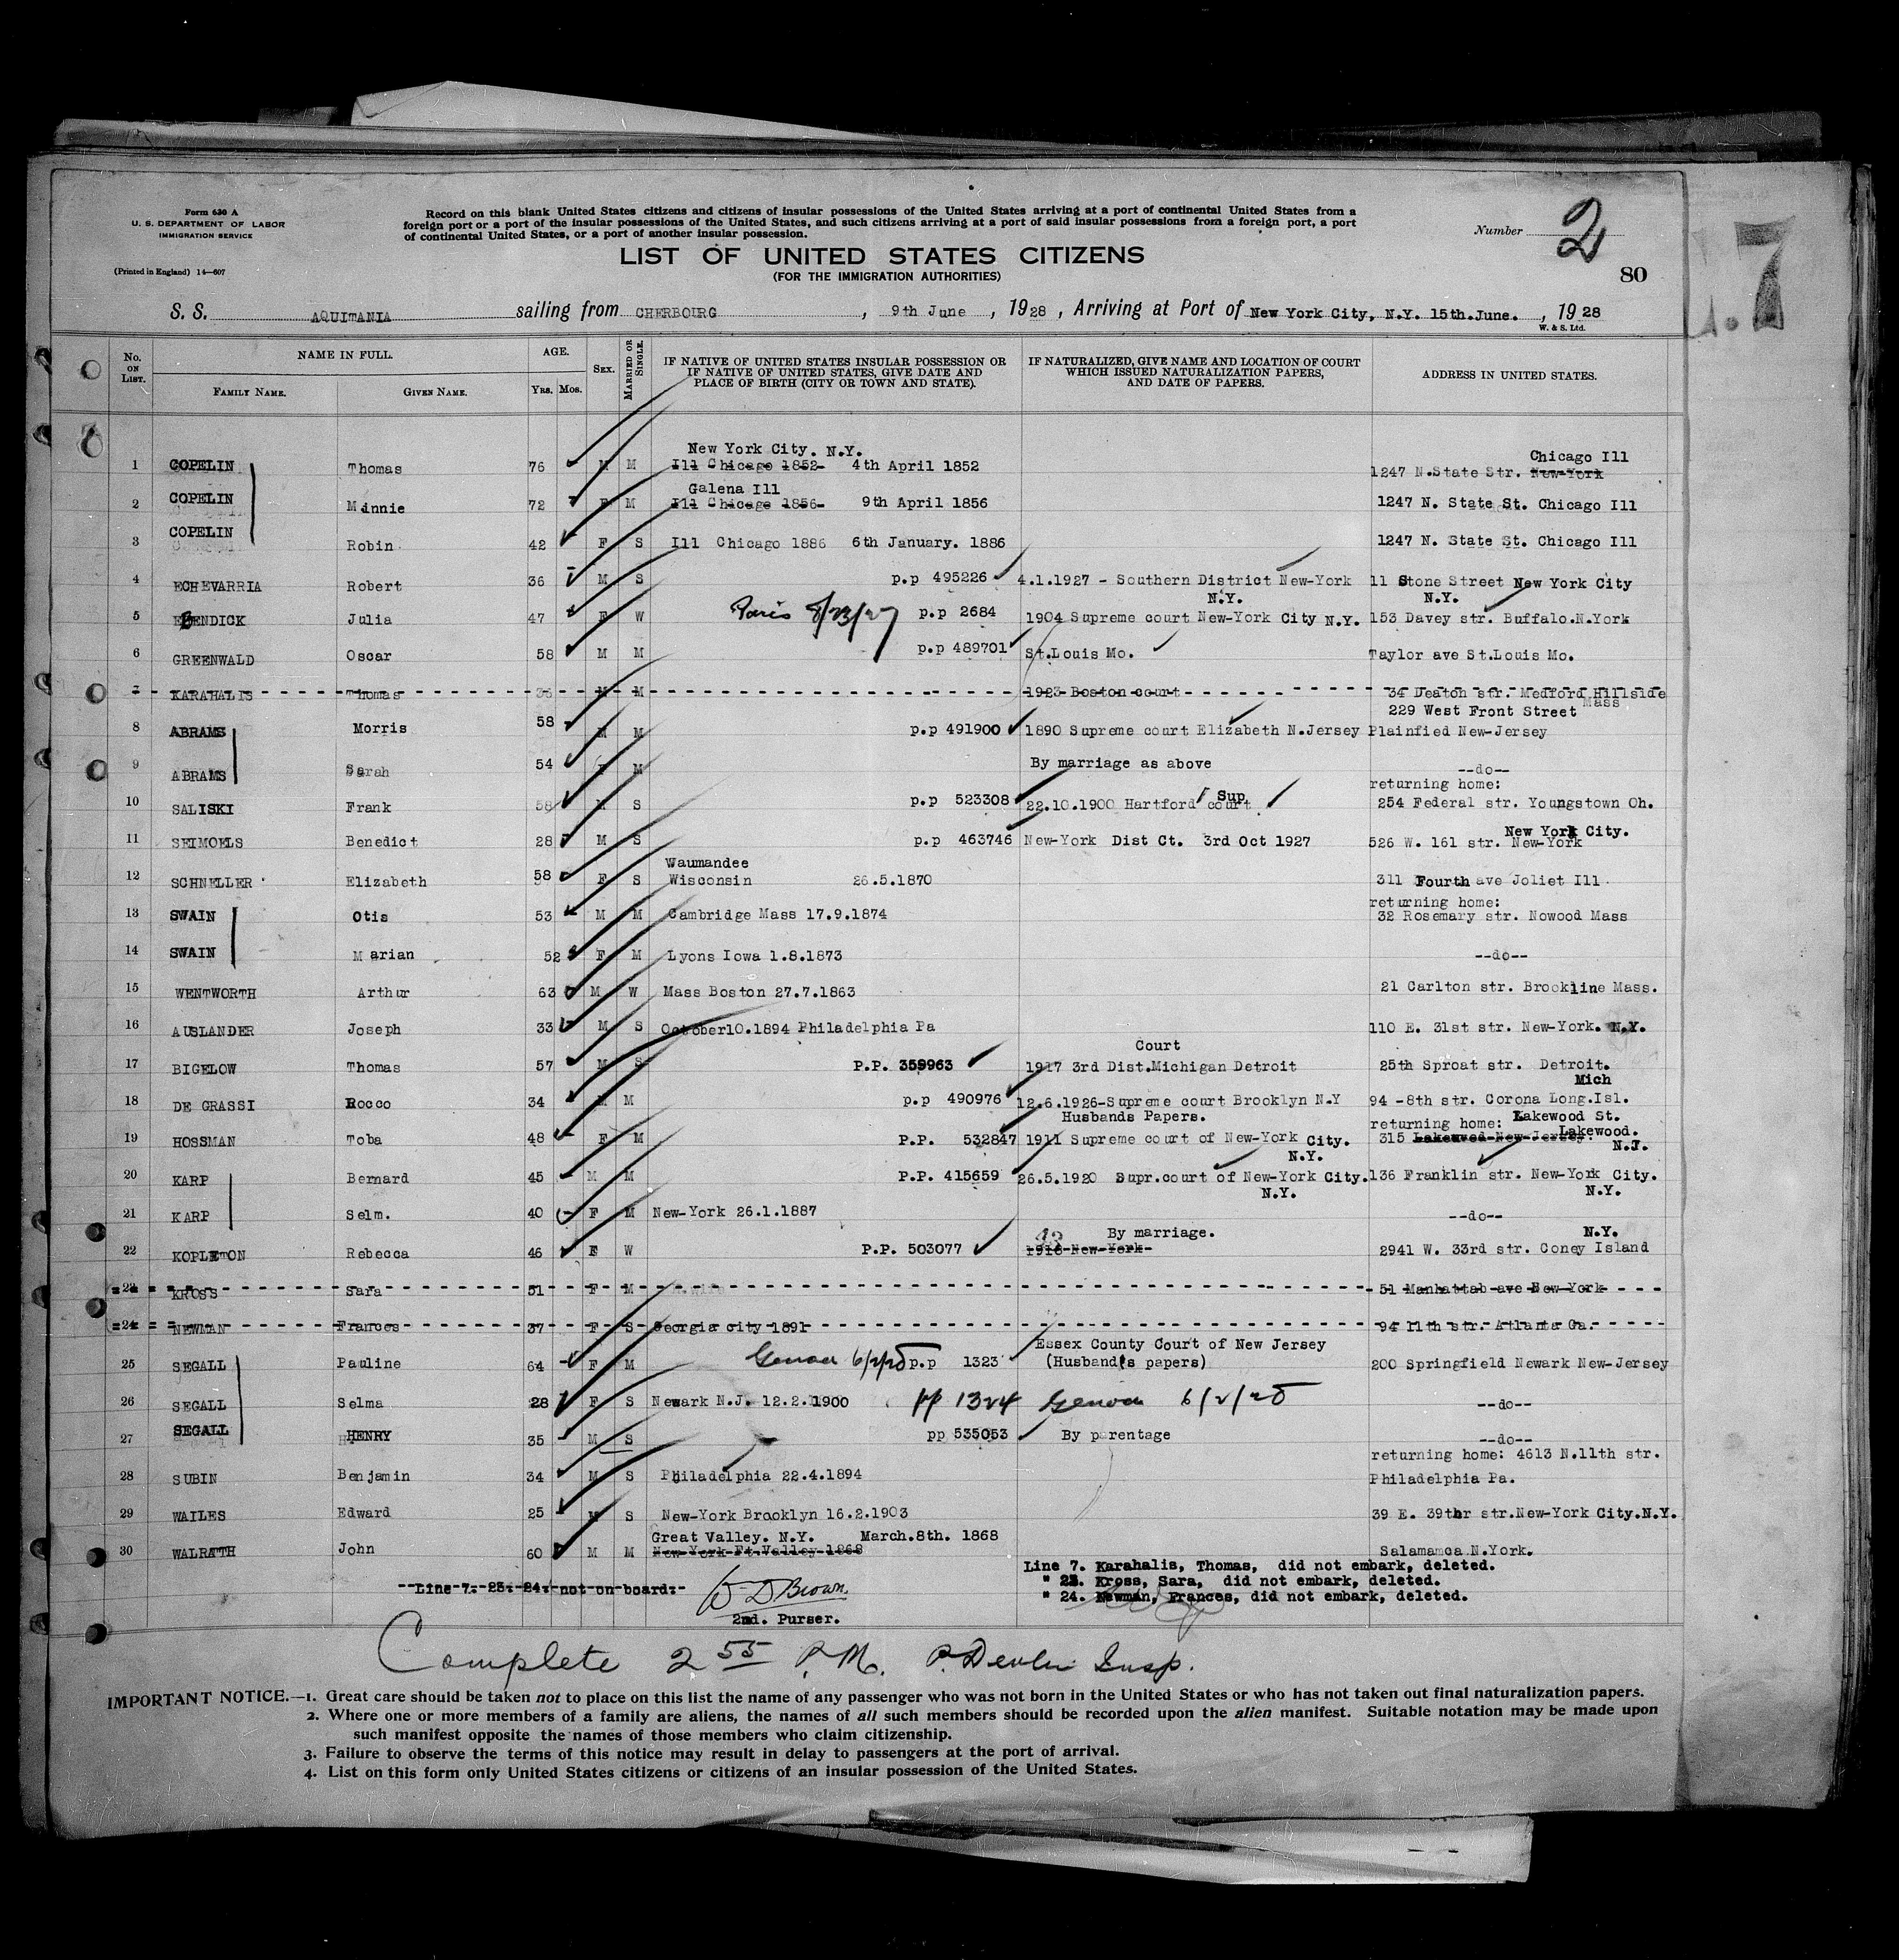 Form 630 A
U. S. DEPARTMENT OF LABOR
IMMIGRATION SERVICE
(Printed in England) 14—607
Record on this blank United States citizens and citizens of insular possessions of the United States arriving at a port of continental United States from a
foreign port or a port of the insular possessions of the United States, and such citizens arriving at a port of said insular possessions from a foreign port, a port
of continental United States, or a port of another insular possession.
Number 2
LIST OF UNITED STATES CITIZENS
(FOR THE IMMIGRATION AUTHORITIES)
80
7
S. S. AQUITANIA sailing from CHERBOURG, 9th June, 1928, Arriving at Port of New York City, N.Y. 15th.June., 1928
W. & S. Ltd.
No. ON LIST. NAME IN FULL. AGE. SEX. MARRIED OR SINGLE. IF NATIVE OF UNITED STATES INSULAR POSSESSION OR IF NATIVE OF UNITED STATES, GIVE DATE AND PLACE OF BIRTH (CITY OR TOWN AND STATE). IF NATURALIZED, GIVE NAME AND LOCATION OF COURT WHICH ISSUED NATURALIZATION PAPERS, AND DATE OF PAPERS. ADDRESS IN UNITED STATES.
FAMILY NAME. GIVEN NAME. YRS. MOS.
New York City. N.Y. Chicago Ill
1 COPELIN Thomas 76 M M Ill Chicago 1852- 4th April 1852 1247 N.State Str. New-York
Galena Ill
2 COPELIN Minnie 72 F M Ill Chicago 1856- 9th April 1856 1247 N. State St. Chicago Ill
3 COPELIN Robin 42 F S Ill Chicago 1886 6th January. 1886 1247 N. State St. Chicago Ill
4 ECHEVARRIA Robert 36 M S p.p 495226 4.1.1927 - Southern District New-York 11 Stone Street New York City
N.Y. N.Y.
5 BENDICK Julia 47 F W Paris 8/23/27 p.p 2684 1904 Supreme court New-York City N.Y. 153 Davey str. Buffalo.N.York
6 GREENWALD Oscar 58 M M p.p 489701 St.Louis Mo. Taylor ave St.Louis Mo.
7 KARAHALIS Thomas 36 M M 1923 Boston court 34 Deaton str. Medford Hillside
Mass
229 West Front Street
8 ABRAMS Morris 58 M M p.p 491900 1890 Supreme court Elizabeth N.Jersey Plainfied New-Jersey
9 ABRAMS Sarah 54 F M By marriage as above --do--
returning home:
10 SALISKI Frank 58 M S p.p 523308 22.10.1900 Hartford Sup court 254 Federal str. Youngstown Oh.
New York City.
11 SEIMOELS Benedict 28 M S p.p 463746 New-York Dist Ct. 3rd Oct 1927 526 W. 161 str. New-York
Waumandee
12 SCHNELLER Elizabeth 58 F S Wisconsin 26.5.1870 311 Fourth ave Joliet Ill
returning home:
13 SWAIN Otis 53 M M Cambridge Mass 17.9.1874 32 Rosemary str. Nowood Mass
14 SWAIN Marian 52 F M Lyons Iowa 1.8.1873 --do--
15 WENTWORTH Arthur 63 M W Mass Boston 27.7.1863 21 Carlton str. Brookline Mass.
16 AUSLANDER Joseph 33 M S October10.1894 Philadelphia Pa 110 E. 31st str. New-York. N.Y.
Court
17 BIGELOW Thomas 57 M S P.P. 359963 1917 3rd Dist.Michigan Detroit 25th Sproat str. Detroit.
Mich
18 DE GRASSI Rocco 34 M M p.p 490976 12.6.1926-Supreme court Brooklyn N.Y 94 -8th str. Corona Long.Isl.
Husbands Papers. returning home: Lakewood St.
19 HOSSMAN Toba 48 F M P.P. 532847 1911 Supreme court of New-York City. 315 Lakewood New-Jersey. Lakewood.
N.Y. N.J.
20 KARP Bernard 45 M M P.P. 415659 26.5.1920 Supr.court of New-York City. 136 Franklin str. New-York City.
N.Y. N.Y.
21 KARP Selm. 40 F M New-York 26.1.1887 --do--
By marriage. N.Y.
22 KOPLETON Rebecca 46 F W P.P. 503077 1918-New-York- 2941 W. 33rd str. Coney Island
23 KROSS Sara 51 F M 51 Manhattab ave New-York
24 NEWMAN Frances 37 F S Georgia city 1891 94 11th str. Atlanta Ga.
Essex County Court of New Jersey
25 SEGALL Pauline 64 F M Genoa 6/2/28 p.p 1323 (Husband's papers) 200 Springfield Newark New-Jersey
26 SEGALL Selma 28 F S Newark N.J. 12.2.1900 pp 1324 Genoa 6/2/28 --do--
27 SEGALL HENRY 35 M S pp 535053 By parentage --do--
returning home: 4613 N.11th str.
28 SUBIN Benjamin 34 M S Philadelphia 22.4.1894 Philadelphia Pa.
29 WAILES Edward 25 M S New-York Brooklyn 16.2.1903 39 E. 39thr str.New-York City.N.Y.
Great Valley. N.Y. March.8th. 1868
30 WALRATH John 60 M M New-York Ft.Valley 1868 Salamanca N.York.
Line 7. Karahalis, Thomas, did not embark, deleted.
--Line-7.-23.-24.-not-on-board.- " 23. Kross, Sara, did not embark, deleted.
W D Brown. " 24. Newman, Frances, did not embark, deleted.
2nd. Purser.
Complete 2 55 P.M. P. Devlin Insp.
IMPORTANT NOTICE.—1. Great care should be taken not to place on this list the name of any passenger who was not born in the United States or who has not taken out final naturalization papers.
2. Where one or more members of a family are aliens, the names of all such members should be recorded upon the alien manifest. Suitable notation may be made upon
such manifest opposite the names of those members who claim citizenship.
3. Failure to observe the terms of this notice may result in delay to passengers at the port of arrival.
4. List on this form only United States citizens or citizens of an insular possession of the United States.